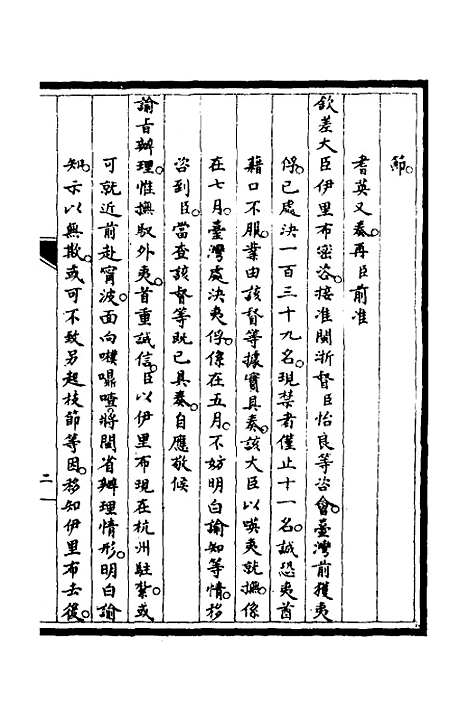 節。
耆英又奏再臣前准
欽差大臣伊里布密咨。接准閩浙督臣怡良等咨會。臺灣前獲夷
俘。已處決一百三十九名。現禁者僅止十一名。誠恐夷酋
藉口不服。業由該督等據實具奏。該大臣以暎夷就撫。係
在七月。臺灣處決夷俘。係在五月。不妨明白諭知等情。移
咨到臣。當查該督等既已具奏。自應敬候
諭旨辦理。惟撫馭外夷。首重誠信。臣以伊里布現在杭州駐紮。或
可就近前赴甯波。面向噗𡃤喳。將閩省辦理情形。明白諭
知。示以無欺。或可不致另起枝節等因。移知伊里布去後。
二